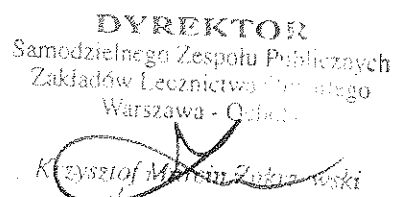 DYREKTOR
Samodzielnego Zespołu Publicznych
Zakładów Lecznictwa
Warszawa -
Krzysztof Marcin